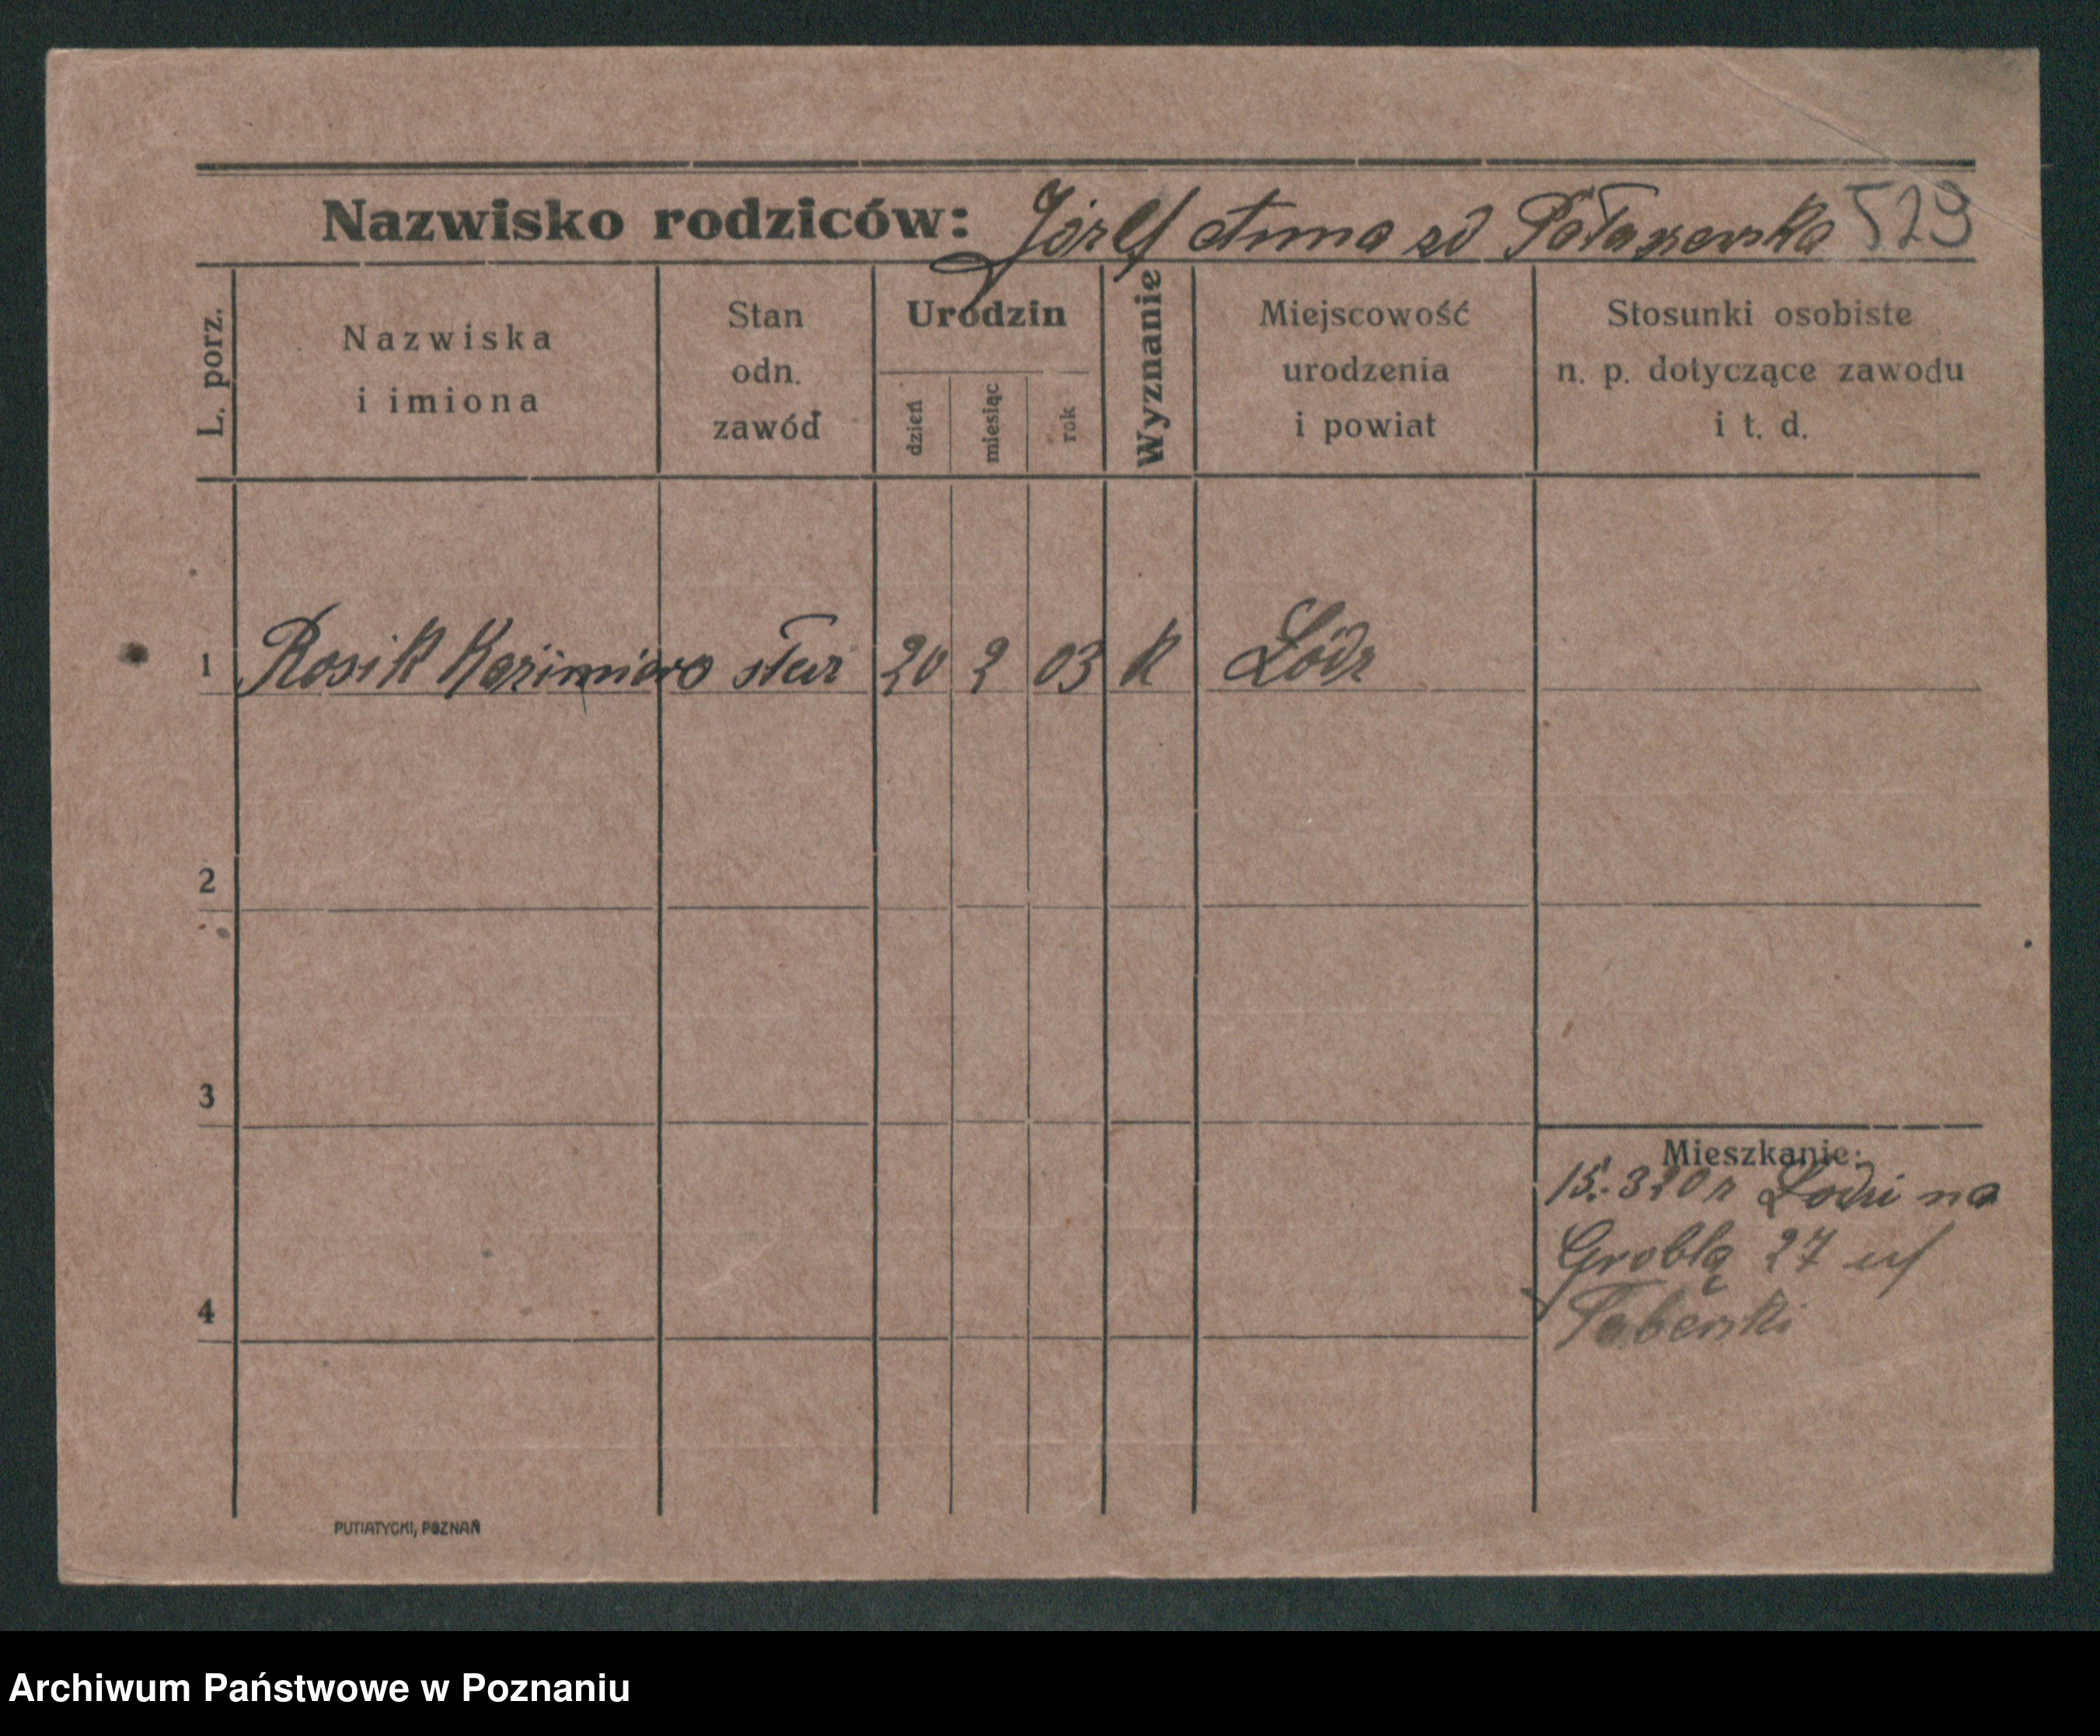 Nazwisko rodziców: Józef Anna zd Pałaszewska 529
L. porz.
Nazwiska
i imiona
Stan
odn.
zawód
Urodzin
dzień
miesiąc
rok
Wyznanie
Miejscowość
urodzenia
i powiat
Stosunki osobiste
n. p. dotyczące zawodu
i t. d.
1 Rosik Kazimiera 20 2 03 K Łódz
2
3
4
Mieszkanie:
15. 3 20 z Łodzi na
Groblą 27 u
Taberski
PUTIATYCKI, POZNAŃ
Archiwum Państwowe w Poznaniu